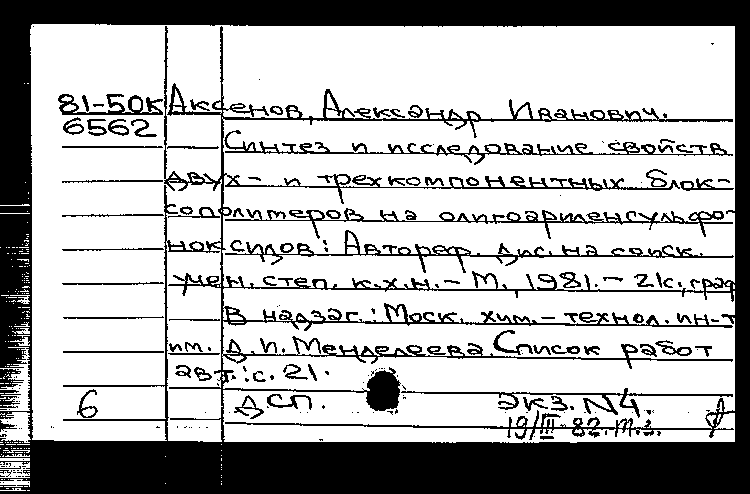 81-50к Аксенов, Александр Иванович.
6562
Синтез и исследование свойств
двух- и трехкомпонентных блок-
сополимеров на олигоариленсульфо-
ноксидов: Автореф. дис. на соиск.
учен. степ. к.х.н. - М., 1981. - 21с., граф
В надзаг.: Моск. хим.-технол. ин-т
им. Д. И. Менделеева. Список работ
авт.: с. 21.
6 ДСП. экз. N4.
19/III-82. т.з.